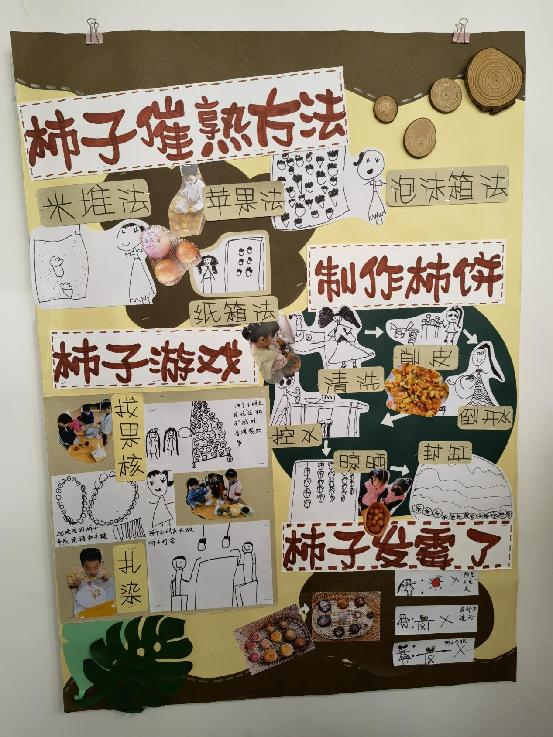 柿子催熟方法
米堆法
苹果法
泡沫箱法
纸箱法
制作柿饼
清洗
削皮
倒开水
控水
晾晒
封缸
柿子游戏
找果核
扎染
柿子发霉了